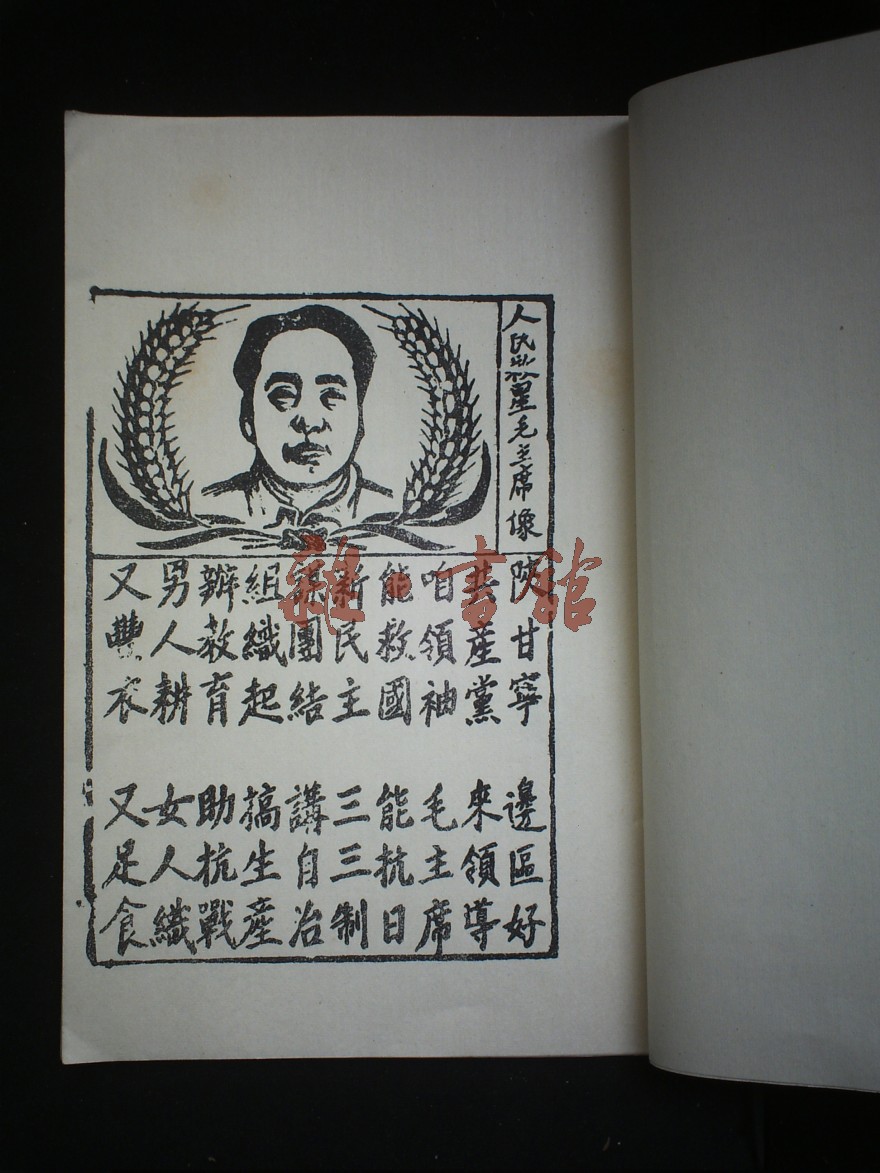 人民救星毛主席像
陝甘寧　邊區好
共產黨　來領導
咱領袖　毛主席
能救國　能抗日
新民主　三三制
謀團結　講自治
組織起　搞生產
辦教育　助抗戰
男人耕　女人織
又豐衣　又足食
雜·書舘